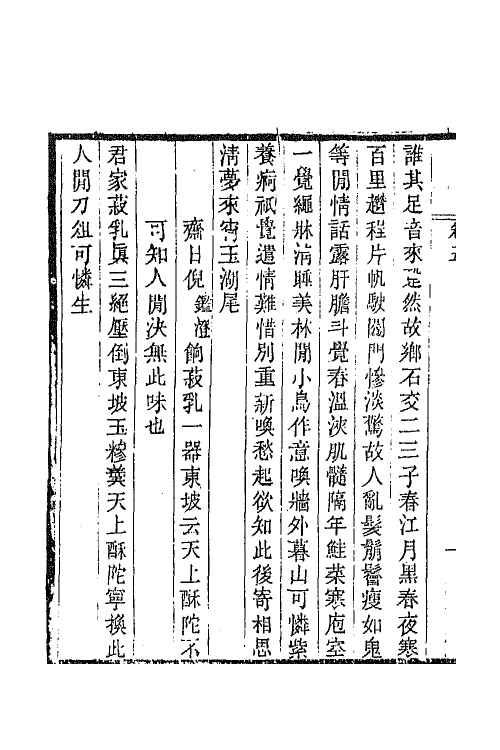 卷五
誰其足音來跫然故鄉石交二三子春江月黑春夜寒
百里趲程片帆駛閶門慘淡驚故人亂髮鬅鬙瘦如鬼
等閒情話露肝膽斗覺春溫浹肌髓隔年鮭菜寒庖空
一覺繩牀淸睡美林閒小鳥作意喚牆外暮山可憐紫
養疴祇覺遣情難惜別重新喚愁起欲知此後寄相思
淸夢來宵玉湖尾
齋日倪鑑澄餉菽乳一器東坡云天上酥陀不
可知人閒決無此味也
君家菽乳眞三絕壓倒東坡玉糝羹天上酥陀寧換此
人閒刀俎可憐生